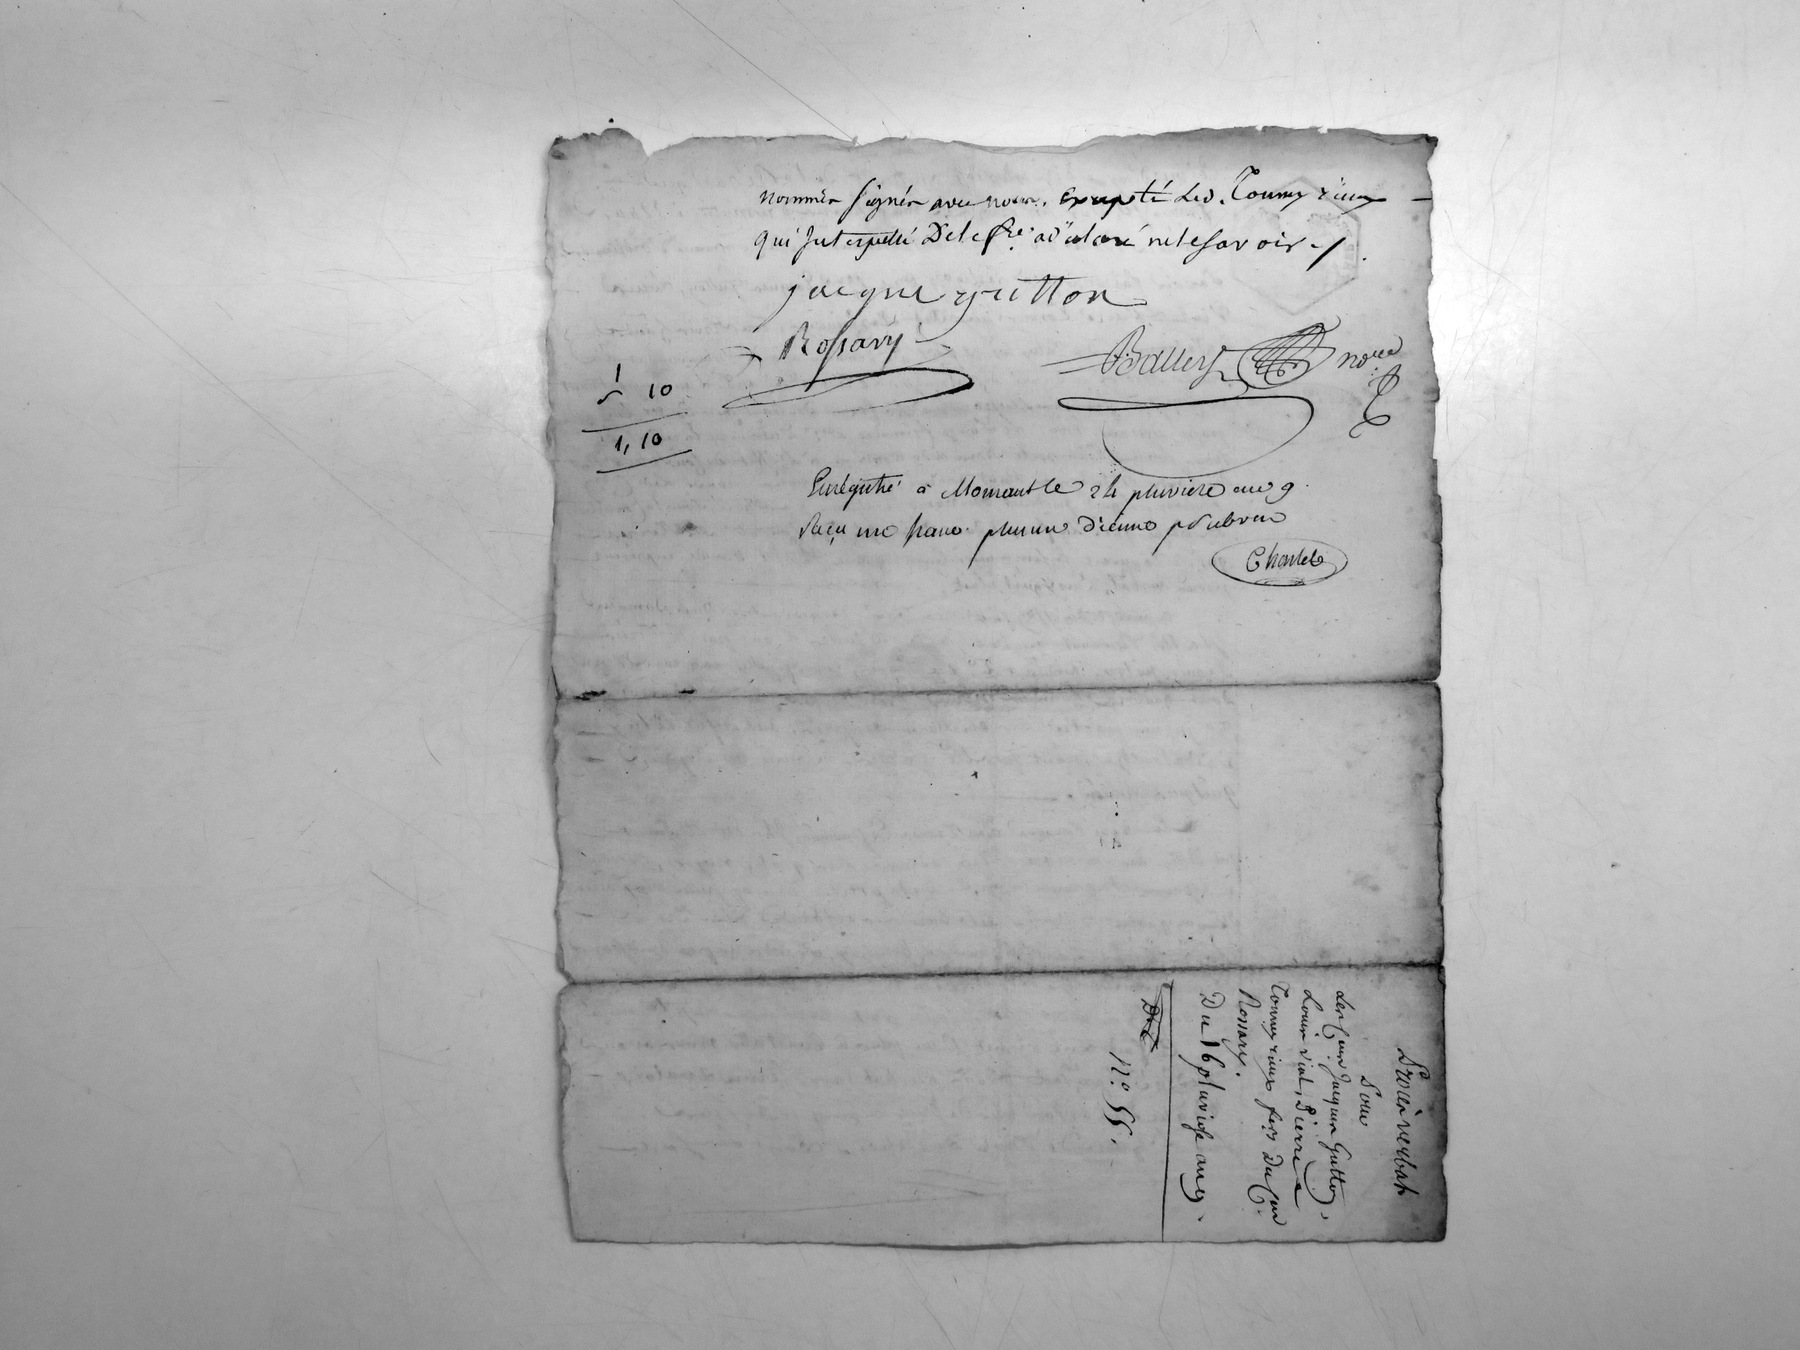 nommés signés avec nous. Excepté led. Tourny rieux
qui Interpellé De le fre. a déclaré ne le savoir ./.
jacque gutton
Rossary
Ballery nore
1
" 10
1, 10
Enregistré à Mornant le 24 pluviose an 9.
Reçu un franc plus un Décime pr subvon
Charlet
Procès verbal
Pour
Les Cens Jacques Gutton,
Louis Vial, Pierre
Tourny rieux fers Du Cen
Rossary.
Du 16 pluviose an 9.
Dté
N.° 55.